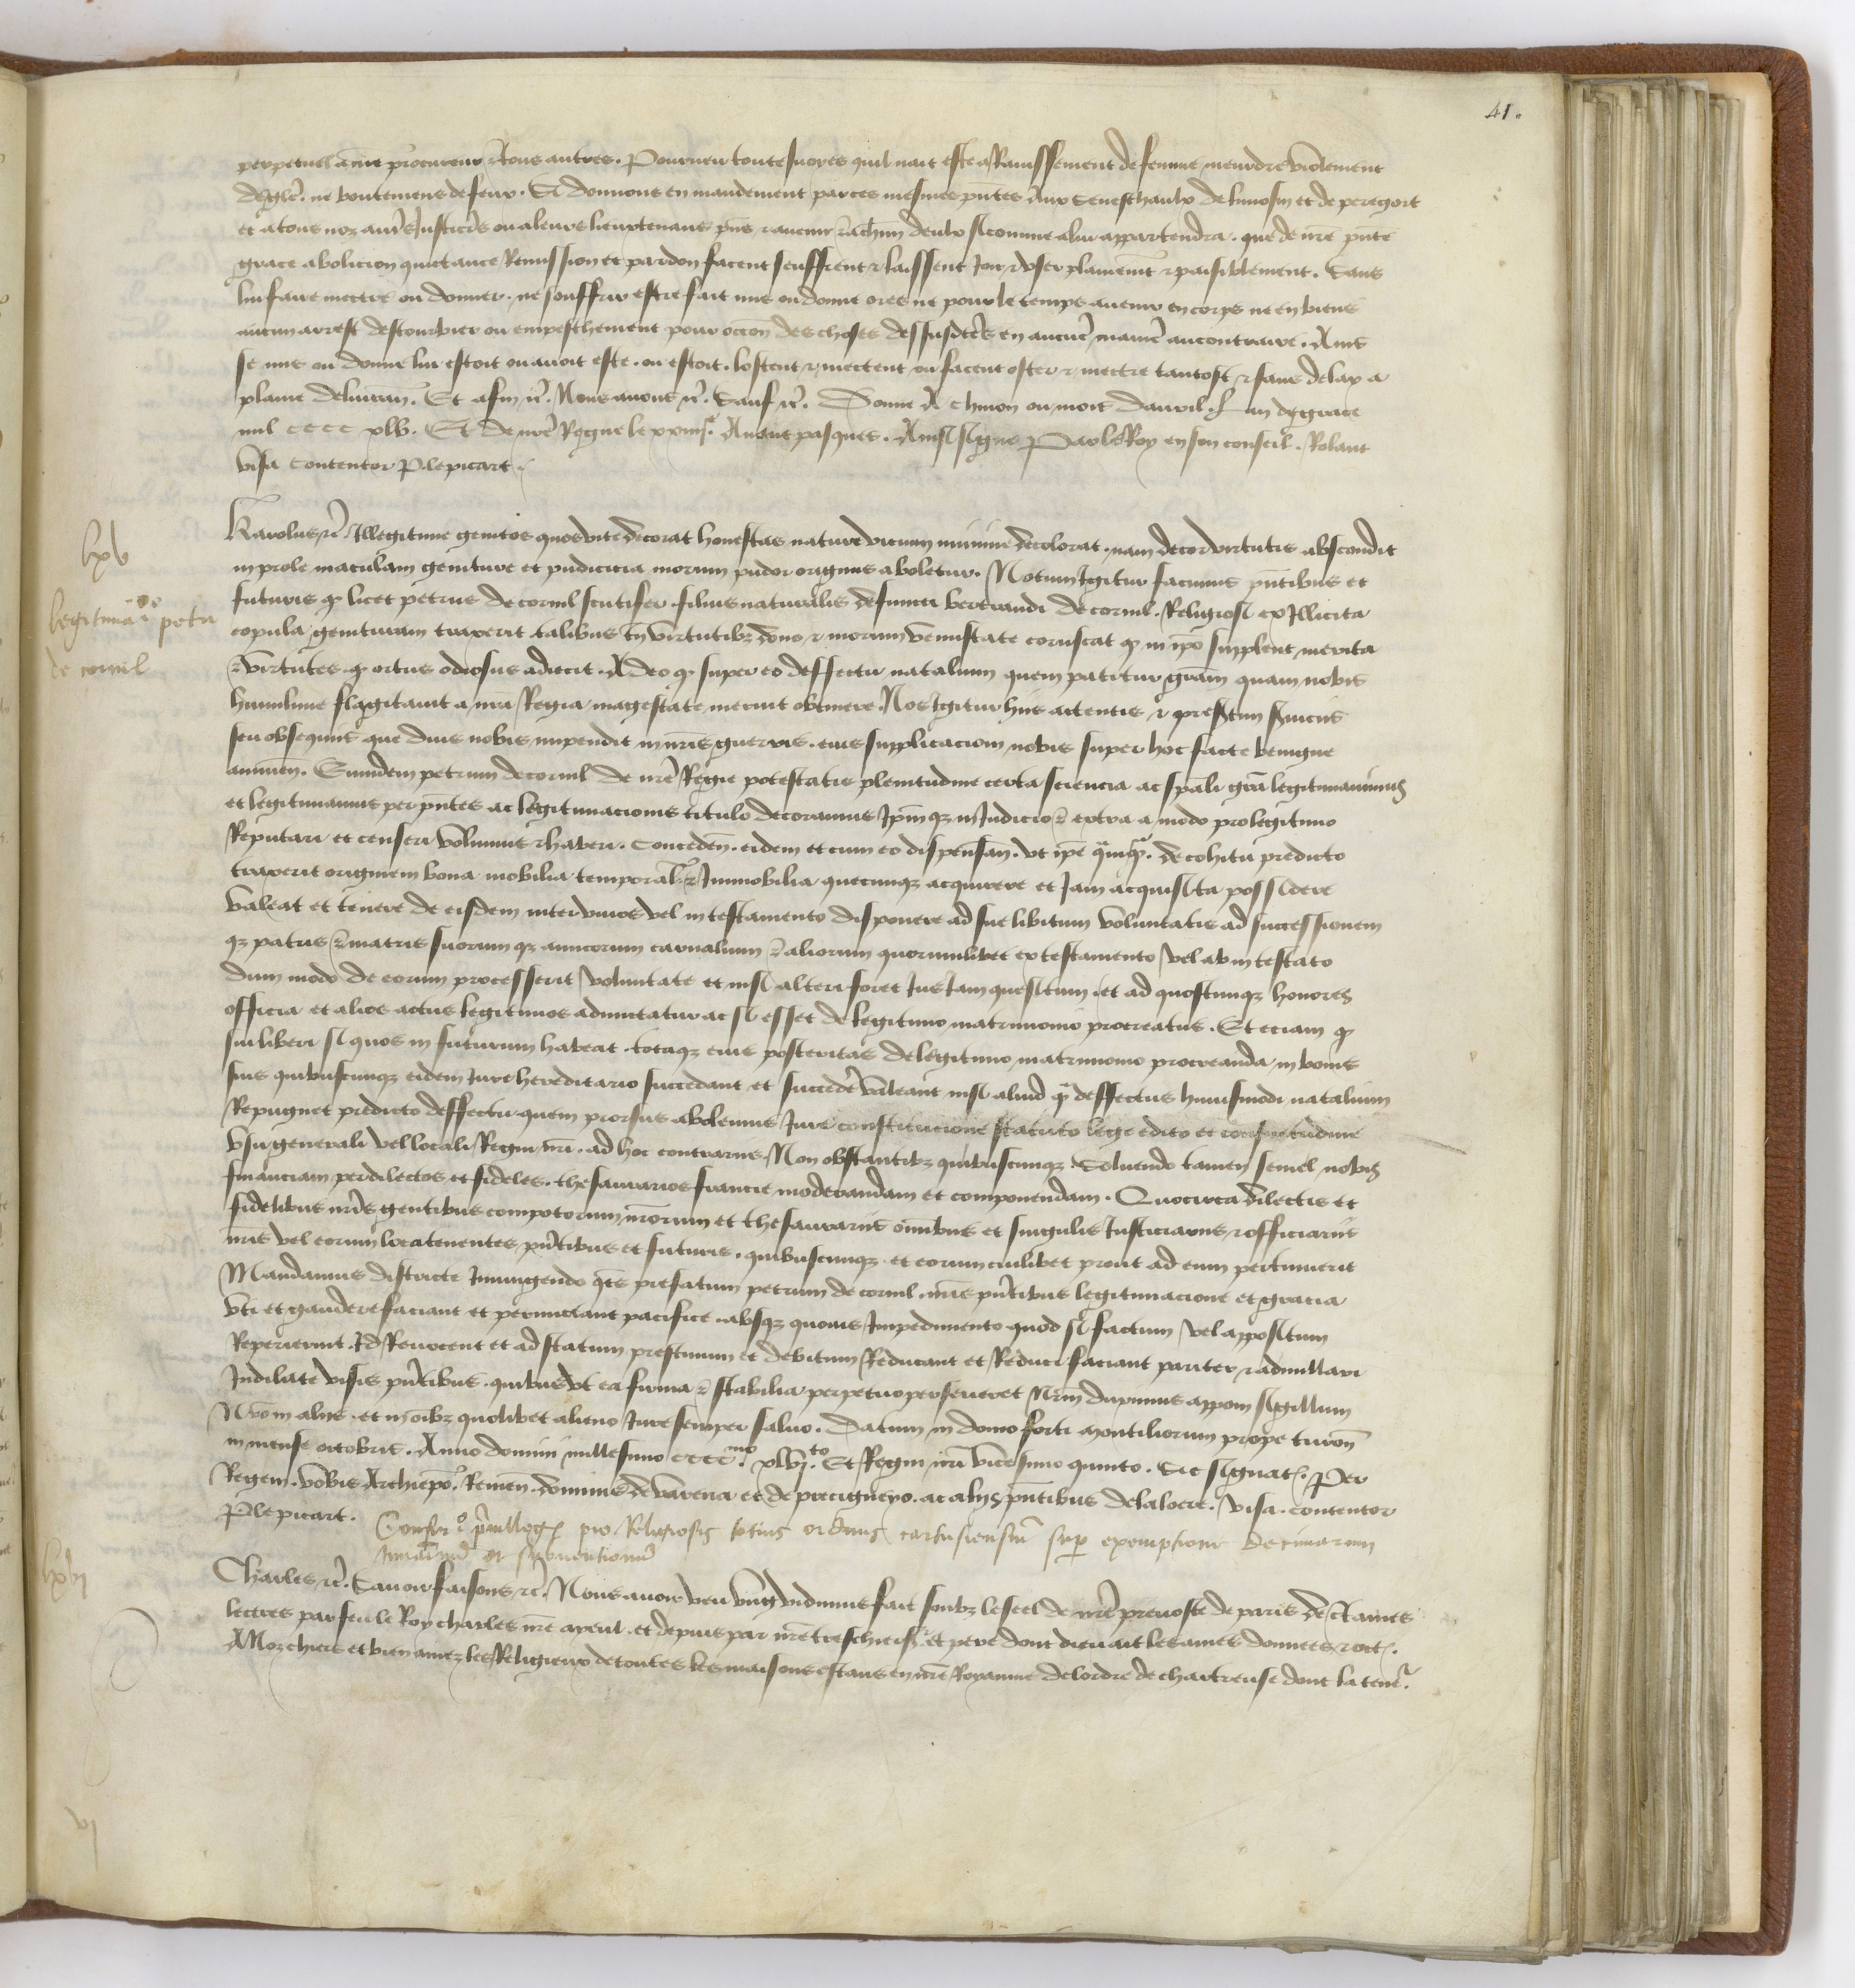 41.
perpetuel a nre procureur & tous autres. Pourveu toutesvoies quil nait este a Ravissement de femme meurdre violement
deglise. ne boutemens de feux. Si donnons en mandement par ces mesmes pntes Aux Seneschaulx de limosin et de peregort
et a tous noz autres Justiciers ou a leurs lieuxtenans pns & avenir & a chun deulx si comme a lui appartendra. que de nre pnte
grace abolicion quictance Remission et pardon facent seuffrent & laissent Joir & user plainemt & paisiblement. Sans
lui faire mectre ou donner. ne souffrir estre fait mis ou donne ores ne pour le temps avenir en corps ne en biens
aucun arrest destourbier ou empeschement pour occon des choses dessusdctes en aucune maniere au contraire. Ains
se mis ou donne lui estoit ou avoit este. ou estoit. lostent & mectent ou facent oster & mectre tantost & sans delay a
plaine delivran. Et afin &c. Nous avons &c. Sauf &c. Donne A Chinon ou mois davril. Lan de grace
mil cccc xlv. Et de nre Regne le xxiiije. Avant pasques. Ainsi signe Par le Roy en son conseil. Rolant
visa contentor P. lepicart.
lxv
legitimacio petri
de cornil
Karolus &c Illegitime genitos quos vite decorat honestas nature vicium minime decolorat. nam decor virtutis abscondit
in prole maculam geniture et pudicicia morum pudor originis aboletur. Notum Igitur facimus pntibus et
futuris q licet petrus de cornil scutifer. filius naturalis defuncti bertrandi de cornil. Religiosi ex Illicita
copula genituram traxerit talibus tn virtutibz dono & morum venustate coruscat q in ipo supplent merita
& virtutes q ortus odiosus adiecit. Adeo q super eo deffectu natalium quem patitur gram quam nobis
humilime flagitavit a nra Regia magestate meruit obtinere. Nos Igitur hiis attentis & presertim serviciis
seu obsequiis que diu nobis impendit in nris guerris. eius supplicacioni nobis super hoc facte benigne
annuen. Eumdem petrum de cornil de nre Regie potestatis plenitudine certa sciencia ac spali gra legitimavimus
et legitimamus per pntes ac legitimacionis titulo decoramus Ipmqz in Judicio & extra a modo pro legitimo
Reputari et censeri volumus & haberi. Conceden. eidem et cum eo dispensan. ut ipe qmqm. de cohitu predicto
traxerit originem bona mobilia temporal & Immobilia quecunqz acquirere et Jam acquisita possidere
valeat et tenere de eisdem inter vivos vel in testamento disponere ad sue libitum voluntatis ad successionem
qz patris & matris suorumqz amicorum carnalium & aliorum quorumlibet ex testamento vel ab intestato
dum modo de eorum processerit voluntate et nisi alteri foret Jus Jam quesitum. et ad quoscunqz honores
officia et alios actus legitimos admittatur ac si esset de legitimo matrimonio procreatus. Et eciam q
sui liberi si quos in futurum habeat. totaqz eius posteritas de legitimo matrimonio procreanda in bonis
suis quibuscunqz eidem Jure hereditario succedant et succede valeant nisi aliud q deffectus huiusmodi natalium
Repugnet predicto deffectu quem prorsus abolemus Jure constitucione statuto lege edito et consuetudine
usu generali vel locali Regni nri. ad hoc contrariis Non obstantibz quibuscunqz. Solvendo tamen semel nobis
financiam per dilectos et fideles. thesaurarios francie moderandam et componendam. Quocirca dilectis et
fidelibus nris gentibus compotorum nrorum et thesaurariis omibus et singulis Justiciariis & officiariis
nris vel eorum locatenentes pntibus et futuris. quibuscunqz. et eorum cuilibet prout ad eum pertinuerit
Mandamus districte Iniungendo qts prefatum petrum de cornil. nris pntibus legitimacione et gracia
uti et gaudere faciant et permictant pacifice absqz quovis Impedimento quod si factum vel appositum
Reperierint. Id Revocent et ad statum pristinum et debitum Reducant et Reduci faciant pariter & adnullari
Indilate visis pntibus. quibus ut ea firma & stabilia perpetuo perseverent Nrm duximus appon sigillum
Nro in aliis. et in oibz quolibet alieno Jure semper salvo. Datum in domo forti montiliorum prope turon
in mense octobris. Anno domini millesimo cccc.mo xlvj.to Et Regni nri vicesimo quinto. Sic signat. Per
Regem. vobis Archiepo. Remen. dominis de varena et de precigneyo. ac aliis pntibus delaloere. visa. contentor
P. lepicart.
Confir privilleg pro Religiosis totius ordinis cartusiensium sup exemptione decimarum
et subventionum
lxvj
Charles &c. Savoir faisons &c. Nous avoir veu ung vidimus fait soubz le seel de nre prevoste de paris de certaines
lectres par feu le Roy charles nre ayeul. et depuis par nre treschier sr et pere dont dieu ait les ames donnees & octr.
A Noz chiers et bien amez les Religieux de toutes les maisons estans en nre Royaume de lordre de chartreuse dont la tene.
vj